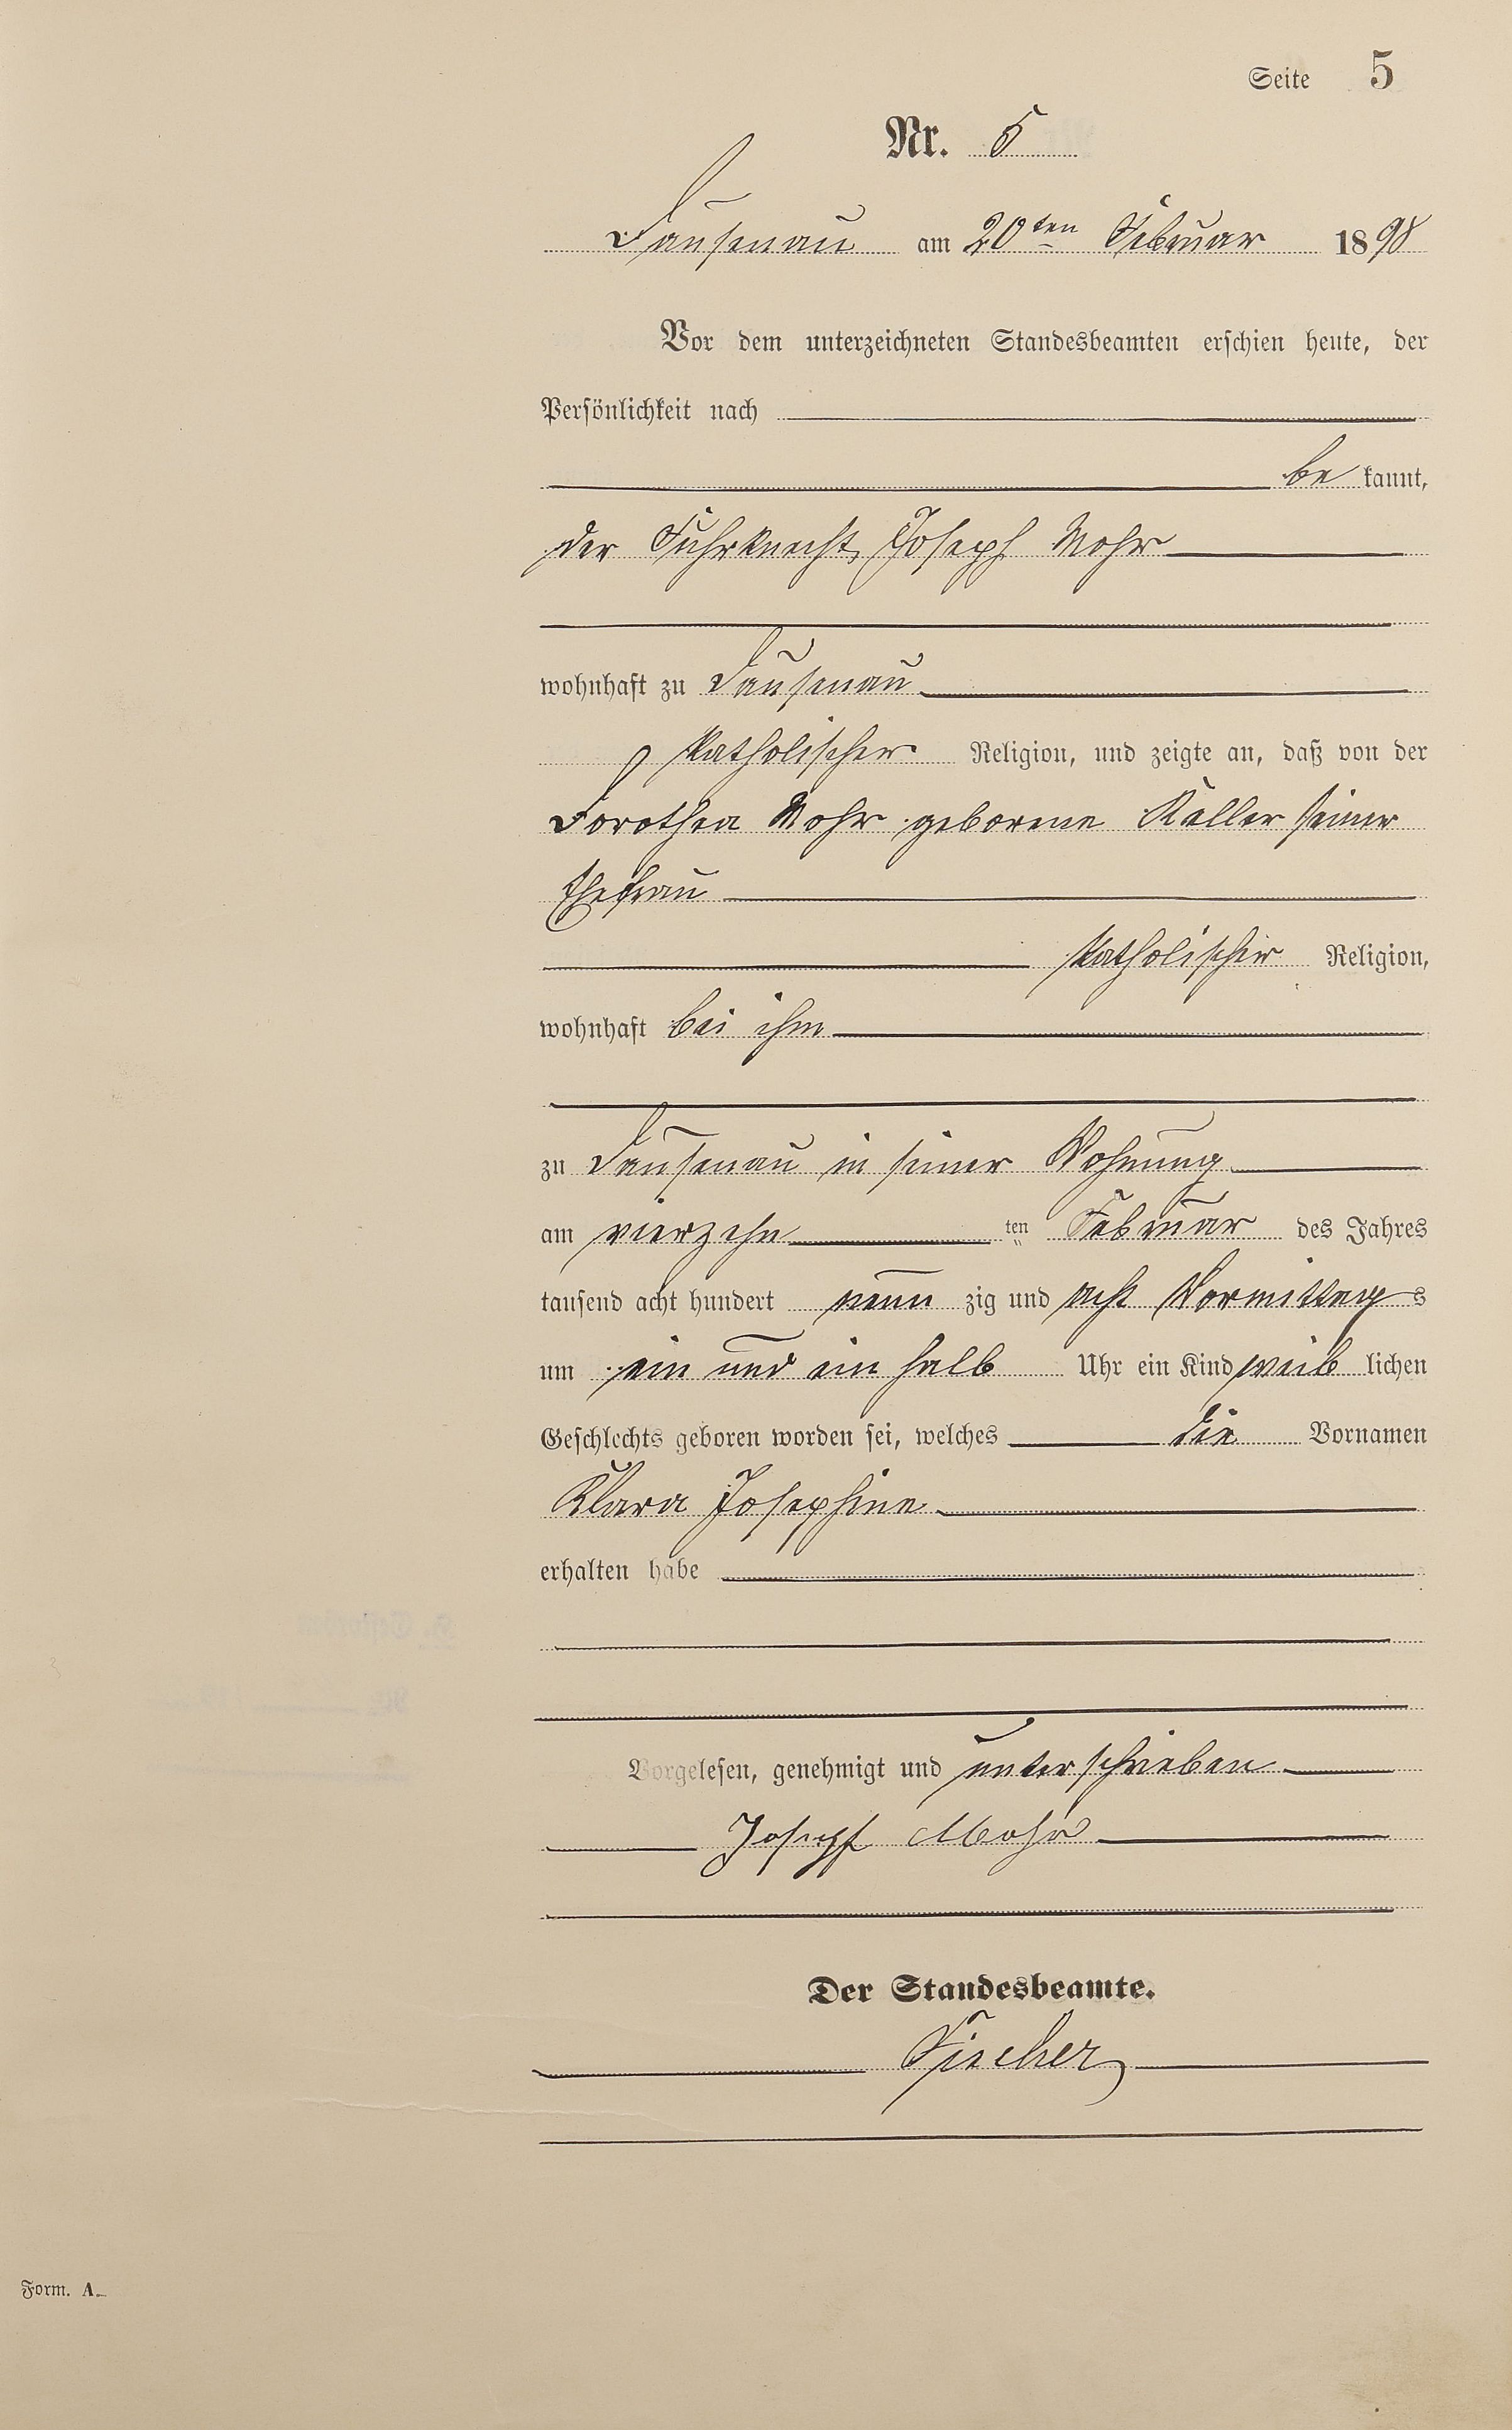 Seite 5
Nr. 5
Dausenau am 20ten Februar 1898
Vor dem unterzeichneten Standesbeamten erschien heute, der
Persönlichkeit nach
be kannt,
der Fuhrknecht, Joseph Mohr
wohnhaft zu Dausenau
katholischer Religion, und zeigte an, daß von der
Dorothea Mohr geborene Keller seiner
Ehefrau
katholischer Religion,
wohnhaft bei ihm
zu Dausenau in seiner Wohnung
am vierzehn ten Februar des Jahres
tausend acht hundert neun zig und acht Vormittag s
um ein und ein halb Uhr ein Kind weib lichen
Geschlechts geboren worden sei, welches die Vornamen
Klara Josephine
erhalten habe
Vorgelesen, genehmigt und unterschrieben
Joseph Mohr
Der Standesbeamte.
Fischer
Form. A.